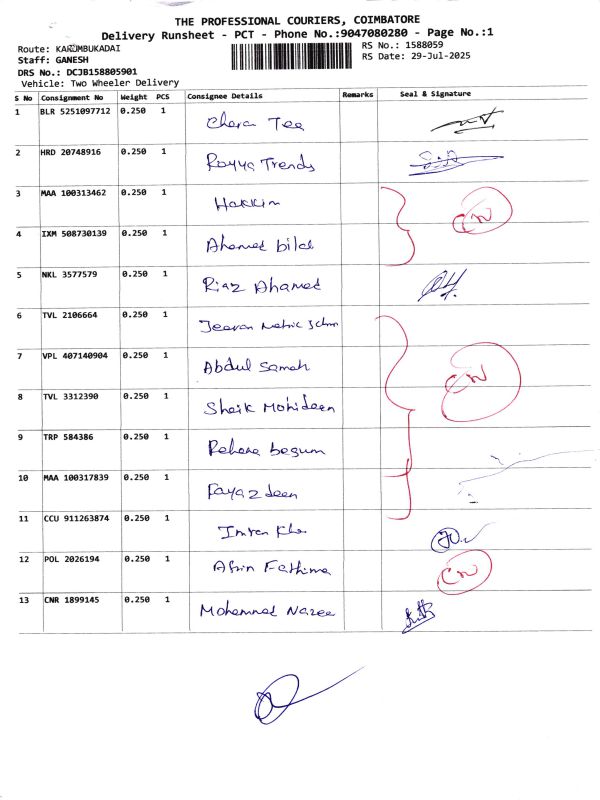 THE PROFESSIONAL COURIERS, COIMBATORE
Delivery Runsheet - PCT - Phone No.:9047080280 - Page No.:1
Route: KARUMBUKADAI
RS No.: 1588059
Staff: GANESH
RS Date: 29-Jul-2025
DRS No.: DCJB158805901
Vehicle: Two Wheeler Delivery
S No Consignment No Weight PCS Consignee Details Remarks Seal & Signature
1 BLR 5251097712 0.250 1 Chera Tee
2 HRD 20748916 0.250 1 Royya Trends
3 MAA 100313462 0.250 1 Hakkim
CN
4 IXM 508730139 0.250 1 Ahamed bilal
5 NKL 3577579 0.250 1 Riaz Ahamed
6 TVL 2106664 0.250 1 Jeevan Matric
7 VPL 407140904 0.250 1 Abdul Samah
CN
8 TVL 3312390 0.250 1 Shaik Mohideen
9 TRP 584386 0.250 1 Rehana begum
10 MAA 100317839 0.250 1 Fayaz deen
11 CCU 911263874 0.250 1 Imran Kha
12 POL 2026194 0.250 1 Afrin Fathima
CN
13 CNR 1899145 0.250 1 Mohammed Nazee